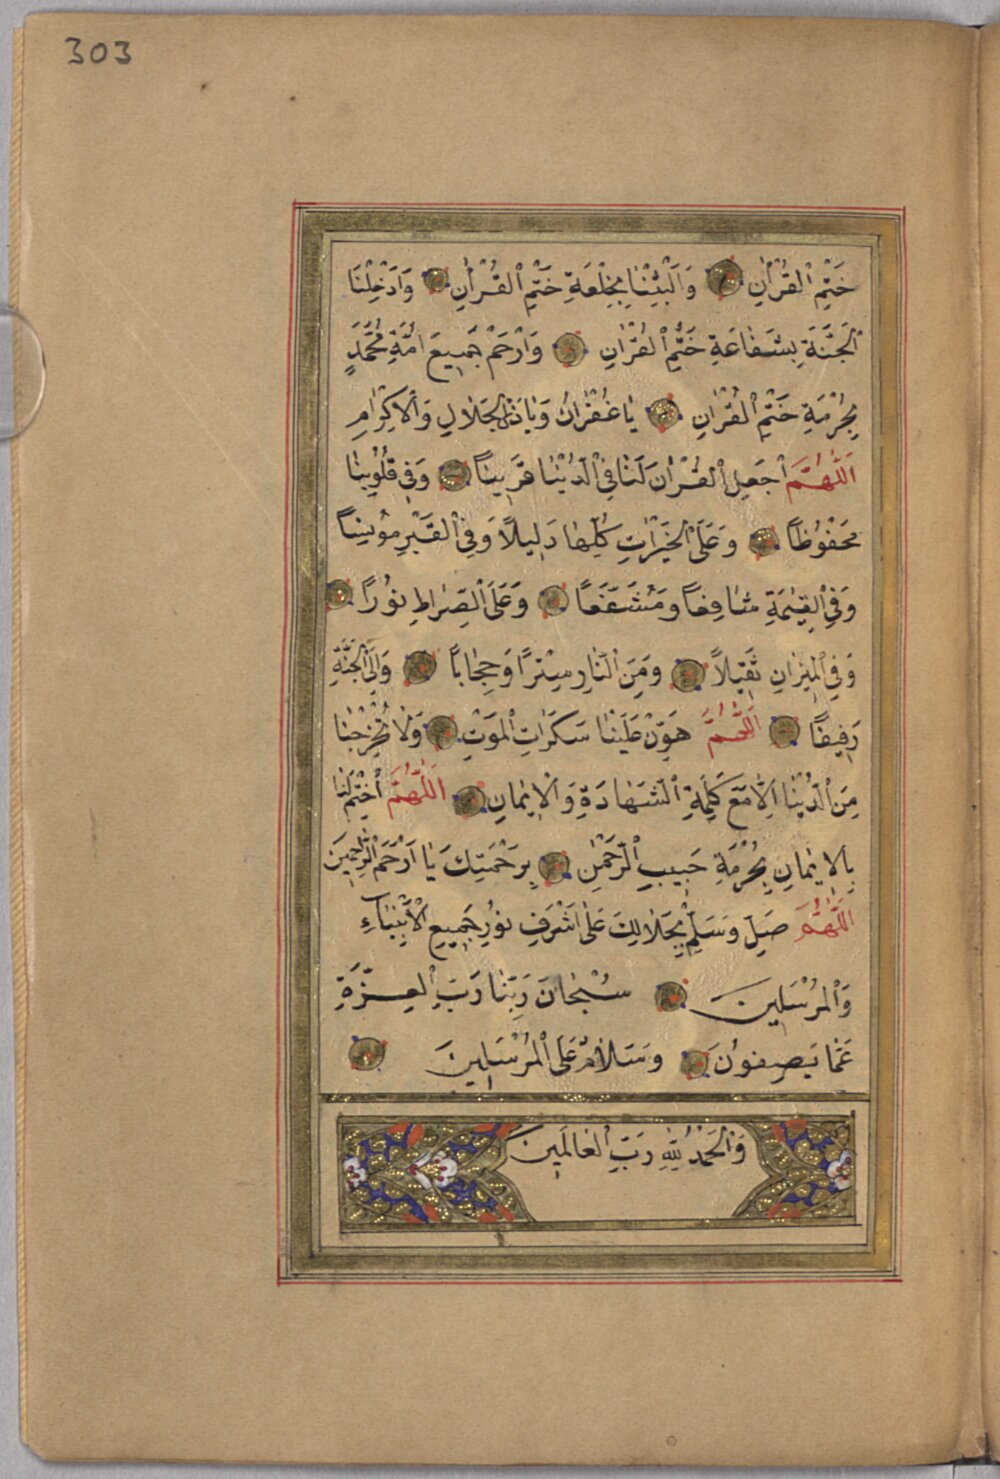 303
خَتْمِ الْقُرْاٰنِ وَاَلْبِسْنَا بِخِلْعَةِ خَتْمِ الْقُرْاٰنِ وَاَدْخِلْنَا
الْجَنَّةَ بِشَفَاعَةِ خَتْمِ الْقُرْاٰنِ وَارْحَمْ جَمِيعَ اُمَّةِ مُحَمَّدٍ
بِحُرْمَةِ خَتْمِ الْقُرْاٰنِ يَا غُفْرَانُ وَيَا ذَا الْجَلَالِ وَالْاِكْرَامِ
اَللّٰهُمَّ اجْعَلِ الْقُرْاٰنَ لَنَا فِي الدُّنْيَا قَرِينًا وَفِي قُلُوبِنَا
مَحْفُوظًا وَعَلَى الْخَيْرَاتِ كُلِّهَا دَلِيلًا وَفِي الْقَبْرِ مُونِسًا
وَفِي الْقِيٰمَةِ شَافِعًا وَمُشَفَّعًا وَعَلَى الصِّرَاطِ نُورًا
وَفِي الْمِيزَانِ ثَقِيلًا وَمِنَ النَّارِ سِتْرًا وَحِجَابًا وَاِلَى الْجَنَّةِ
رَفِيقًا اَللّٰهُمَّ هَوِّنْ عَلَيْنَا سَكَرَاتِ الْمَوْتِ وَلَا تُخْرِجْنَا
مِنَ الدُّنْيَا اِلَّا مَعَ كَلِمَةِ الشَّهَادَةِ وَالْاِيمَانِ اَللّٰهُمَّ اخْتِمْ لَنَا
بِالْاِيمَانِ بِحُرْمَةِ حَبِيبِ الرَّحْمٰنِ بِرَحْمَتِكَ يَا اَرْحَمَ الرَّاحِمِينَ
اَللّٰهُمَّ صَلِّ وَسَلِّمْ بِجَلَالِكَ عَلَى اَشْرَفِ نُورِ جَمِيعِ الْاَنْبِيَاءِ
وَالْمُرْسَلِينَ سُبْحَانَ رَبِّنَا رَبِّ الْعِزَّةِ
عَمَّا يَصِفُونَ وَسَلَامٌ عَلَى الْمُرْسَلِينَ
وَالْحَمْدُ لِلّٰهِ رَبِّ الْعَالَمِينَ